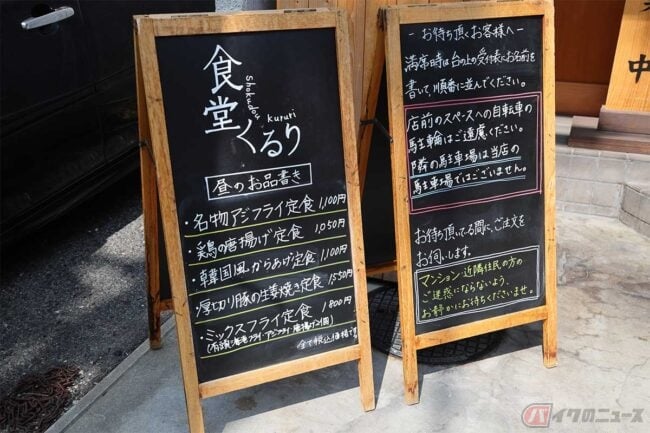 食堂くるり
Shokudou
Kururi
昼のお品書き
・名物アジフライ定食 1,100円
・鶏の唐揚げ定食 1,050円
・韓国風からあげ定食 1,100円
・厚切り豚の生姜焼き定食 1,550円
・ミックスフライ定食 1,800円
全て税込価格です
－お待ち頂くお客様へ－
満席時は台の上の受付表にお名前を
書いて、順番に並んでください。
店前のスペースへの自転車の
駐輪はご遠慮ください。
隣の駐車場は当店の
駐車場ではございません。
お待ち頂いてる間に、ご注文を
お伺いします。
マンション・近隣住民の方の
ご迷惑にならないよう、
お静かにお待ちくださいませ。
中
バイクのニュース